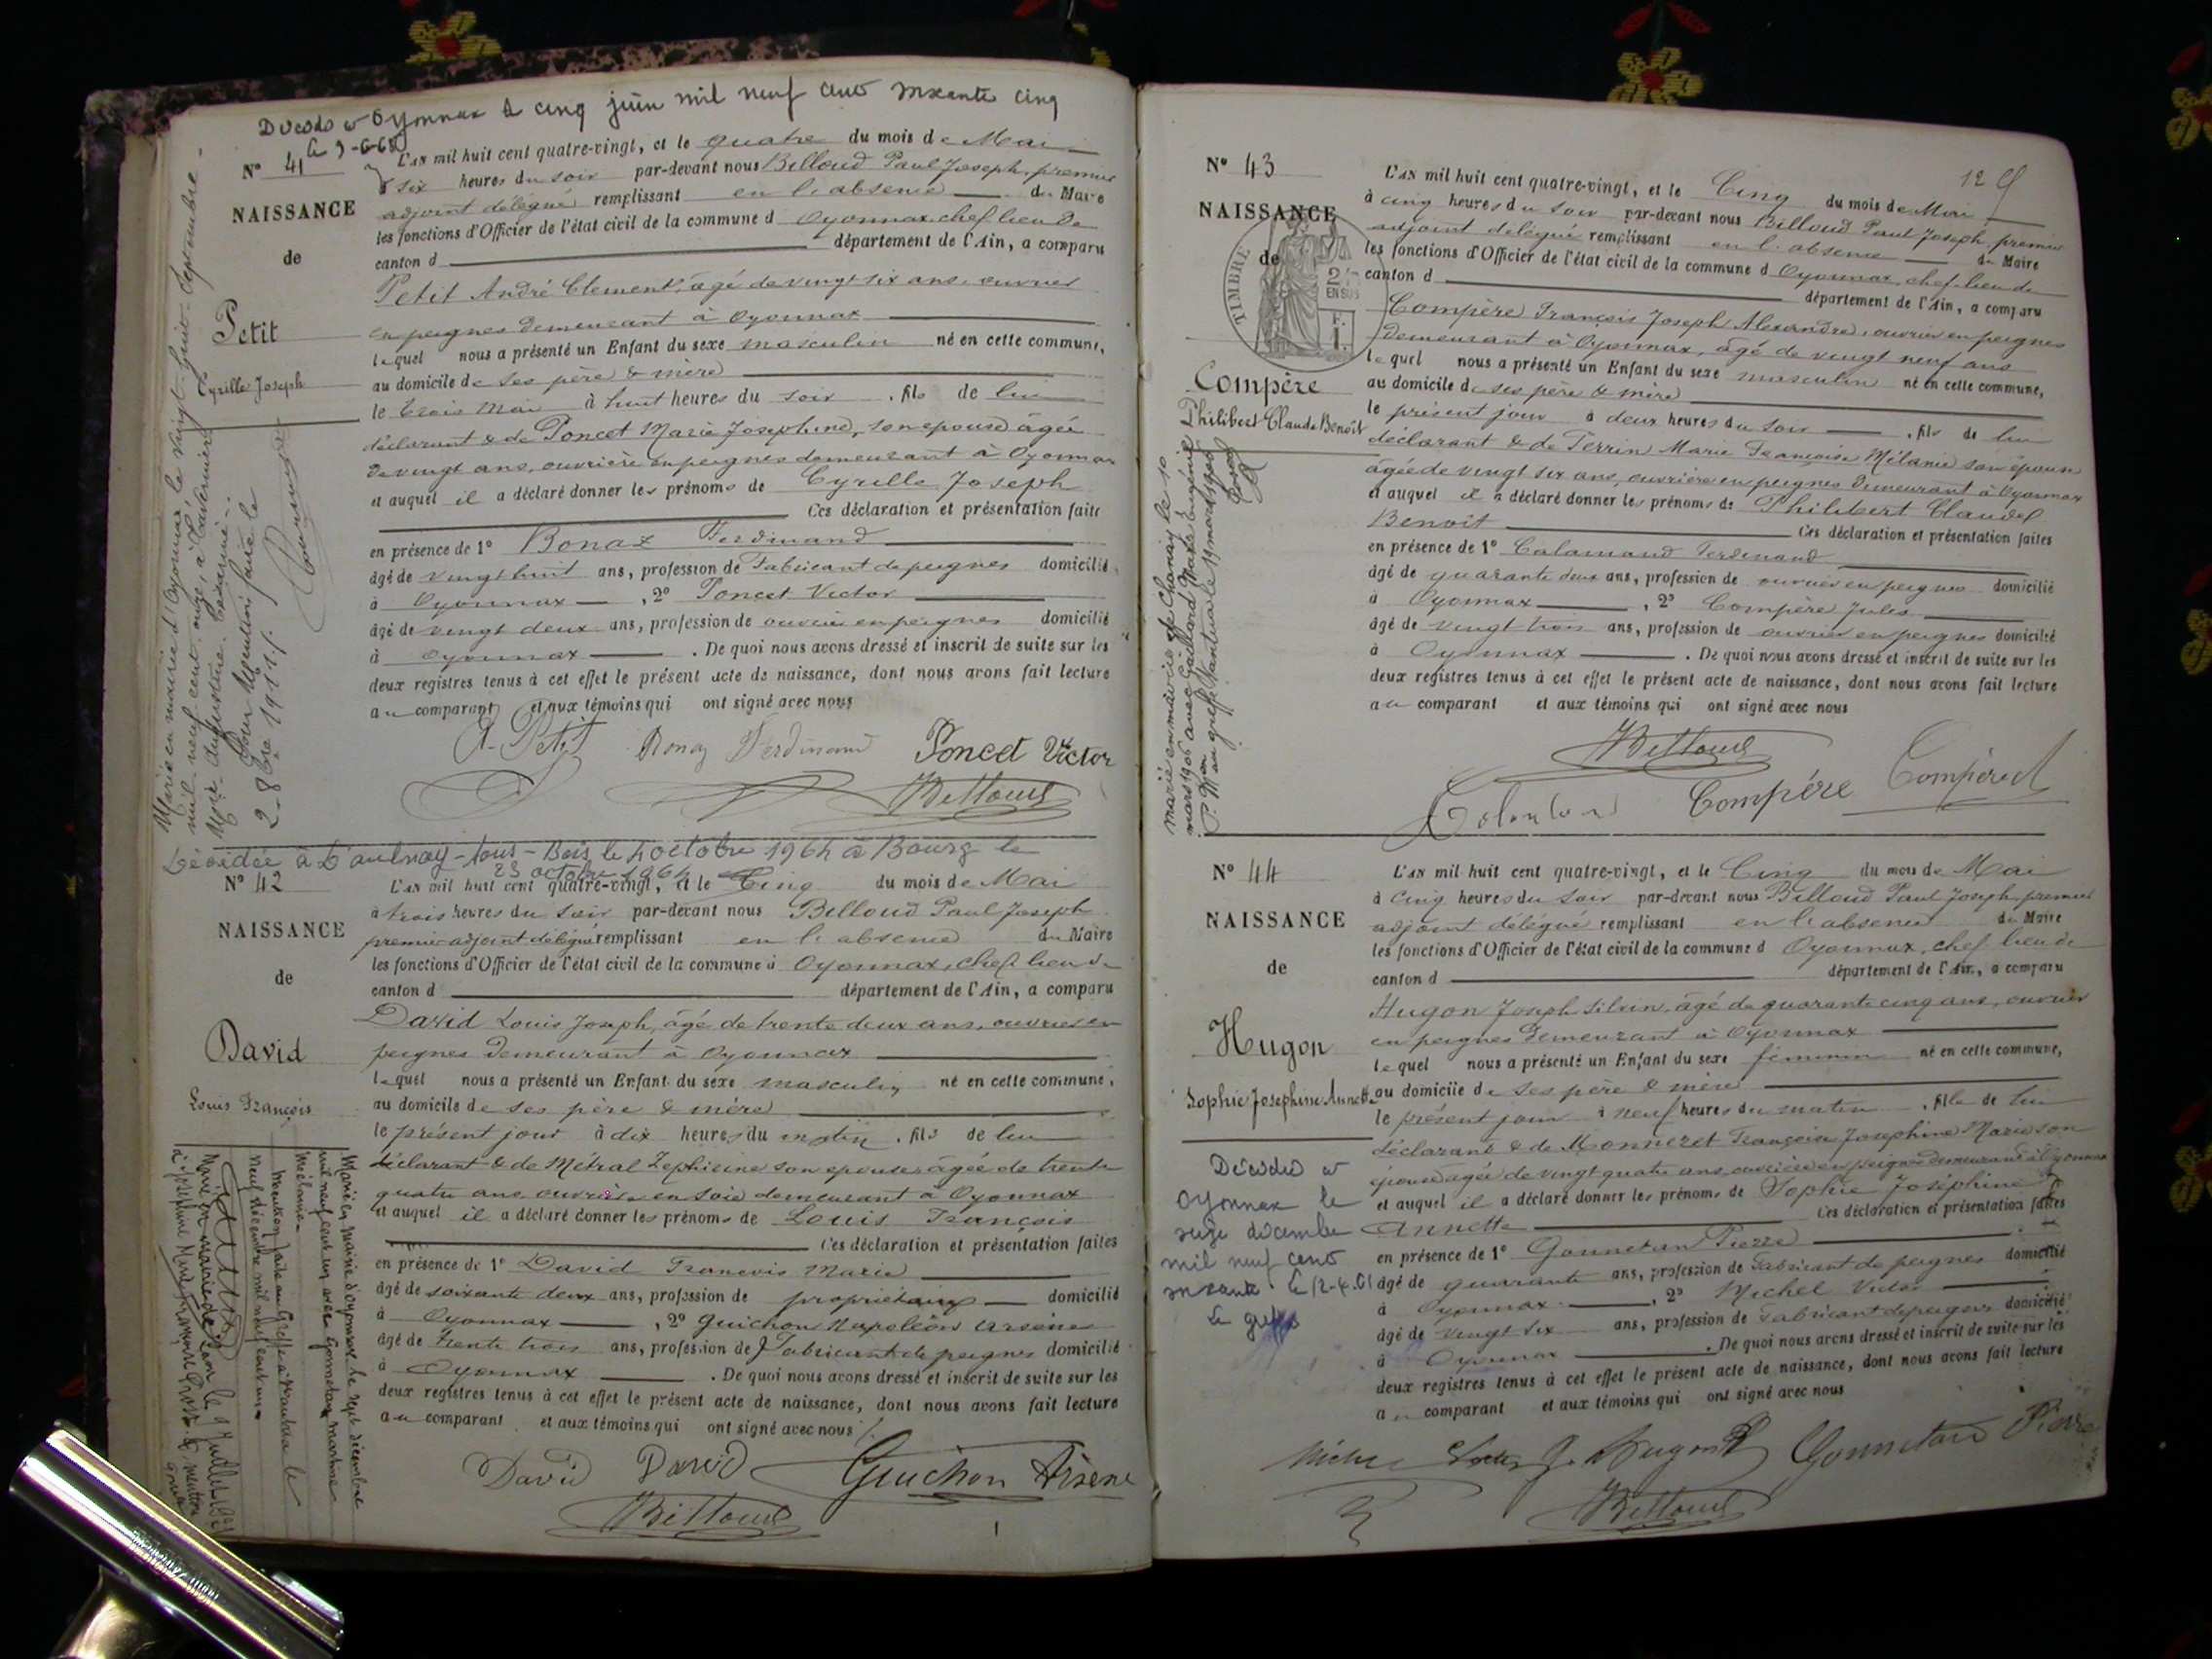 Oyonnax le cinq juin mil neuf cent soixante cinq
N° 41
NAISSANCE
de
Petit
Cyrille Joseph
L'AN mil huit cent quatre-vingt, et le quatre du mois de Mai
à six heures du soir par-devant nous Billoud Paul Joseph, premier
adjoint délégué remplissant en l'absence du Maire
les fonctions d'Officier de l'état civil de la commune d Oyonnax, chef lieu de
canton d département de l'Ain, a comparu
Petit André Clement, âgé de vingt six ans, ouvrier
en peignes demeurant à Oyonnax
lequel nous a présenté un Enfant du sexe masculin né en cette commune,
au domicile de ses père & mère
le trois Mai à huit heures du soir, fils de lui
déclarant & de Poncet Marie Josephine, son épouse âgée
de vingt ans, ouvrière en peignes demeurant à Oyonnax
et auquel il a déclaré donner les prénoms de Cyrille Joseph
Ces déclaration et présentation faites
en présence de 1° Bonaz Ferdinand
âgé de vingt huit ans, profession de Fabricant de peignes domicilié
à Oyonnax , 2° Poncet Victor
âgé de vingt deux ans, profession de ouvrier en peignes domicilié
à Oyonnax . De quoi nous avons dressé et inscrit de suite sur les
deux registres tenus à cet effet le présent acte de naissance, dont nous avons fait lecture
au comparant et aux témoins qui ont signé avec nous
A. Petit Bonaz Ferdinand Poncet Victor
Billoud
Marié en mairie d'Oyonnax, le vingt-huit septembre
mil neuf cent onze, à
2-8bre 1911
à Aulnay-sous-Bois le 4 octobre 1964 à Bourg le
23 octobre 1964
N° 42
NAISSANCE
de
David
Louis François
L'AN mil huit cent quatre-vingt, et le Cinq du mois de Mai
à trois heures du soir par-devant nous Billoud Paul Joseph
premier adjoint délégué remplissant en l'absence du Maire
les fonctions d'Officier de l'état civil de la commune d Oyonnax, chef lieu de
canton d département de l'Ain, a comparu
David Louis Joseph, âgé de trente deux ans, ouvrier en
peignes demeurant à Oyonnax
lequel nous a présenté un Enfant du sexe masculin né en cette commune,
au domicile de ses père & mère
le présent jour à dix heures du matin, fils de lui
déclarant & de Métral Zephirine son épouse, âgée de trente
quatre ans, ouvrière en soie demeurant à Oyonnax
et auquel il a déclaré donner les prénoms de Louis François
Ces déclaration et présentation faites
en présence de 1° David François Marie
âgé de soixante deux ans, profession de propriétaire domicilié
à Oyonnax , 2° Guichon Napoléon Arsène
âgé de trente trois ans, profession de Fabricant de peignes domicilié
à Oyonnax . De quoi nous avons dressé et inscrit de suite sur les
deux registres tenus à cet effet le présent acte de naissance, dont nous avons fait lecture
au comparant et aux témoins qui ont signé avec nous
David David Guichon Arsène
Billoud
Marié en mairie d'Oyonnax le sept décembre
mil neuf cent un avec
Mélanie
Mention faite au Greffe à Nantua le
neuf décembre mil neuf cent un
N° 43
NAISSANCE
de
TIMBRE
Compère
Philibert Claude Benoît
12
L'AN mil huit cent quatre-vingt, et le Cinq du mois de Mai
à cinq heures du soir par-devant nous Billoud Paul Joseph, premier
adjoint délégué remplissant en l'absence du Maire
les fonctions d'Officier de l'état civil de la commune d Oyonnax, chef lieu de
canton d département de l'Ain, a comparu
Compère François Joseph Alexandre, ouvrier en peignes
demeurant à Oyonnax, âgé de vingt neuf ans
lequel nous a présenté un Enfant du sexe masculin né en cette commune,
au domicile de ses père & mère
le présent jour à deux heures du soir, fils de lui
déclarant & de Perrin Marie Françoise Mélanie son épouse
âgée de vingt six ans, ouvrière en peignes demeurant à Oyonnax
et auquel il a déclaré donner les prénoms de Philibert Claude
Benoît Ces déclaration et présentation faites
en présence de 1° Calamand Ferdinand
âgé de quarante deux ans, profession de ouvrier en peignes domicilié
à Oyonnax , 2° Compère Jules
âgé de vingt trois ans, profession de ouvrier en peignes domicilié
à Oyonnax . De quoi nous avons dressé et inscrit de suite sur les
deux registres tenus à cet effet le présent acte de naissance, dont nous avons fait lecture
au comparant et aux témoins qui ont signé avec nous
Billoud
Compère Compère
marié en mairie de Chanay le 10
mars 1906 avec Gaillard Marie Eugénie
N° 44
NAISSANCE
de
Hugon
Sophie Josephine Annette
L'AN mil huit cent quatre-vingt, et le Cinq du mois de Mai
à cinq heures du soir par-devant nous Billoud Paul Joseph premier
adjoint délégué remplissant en l'absence du Maire
les fonctions d'Officier de l'état civil de la commune d Oyonnax, chef lieu de
canton d département de l'Ain, a comparu
Hugon Joseph Silvin, âgé de quarante cinq ans, ouvrier
en peignes demeurant à Oyonnax
lequel nous a présenté un Enfant du sexe féminin né en cette commune,
au domicile de ses père & mère
le présent jour à neuf heures du matin, fille de lui
déclarant & de Monneret Françoise Josephine Marie son
épouse âgée de vingt quatre ans, ouvrière en peignes demeurant à Oyonnax
et auquel il a déclaré donner les prénoms de Sophie Joséphine
Annette Ces déclaration et présentation faites
en présence de 1° Gonnetan Pierre
âgé de quarante ans, profession de Fabricant de peignes domicilié
à Oyonnax , 2° Michel Victor
âgé de vingt six ans, profession de Fabricant de peignes domicilié
à Oyonnax . De quoi nous avons dressé et inscrit de suite sur les
deux registres tenus à cet effet le présent acte de naissance, dont nous avons fait lecture
au comparant et aux témoins qui ont signé avec nous
J. Hugon Gonnetan Pierre
Billoud
Décédée à
Oyonnax le
seize décembre
mil neuf cent
soixante le 12.4.61
Le greffier